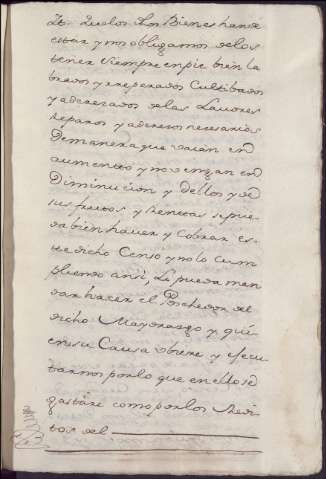 It. que los dhos Bienes han de
estar y nos obligamos de los
tener siempre en pie bien la
brados y rreparados Cultibados
y aderezados de las Lavores
reparos y aderezos necesarios
De manera que vaian en
aumento y no vengan en
Diminucion y dellos y de
sus frutos y Rentas se pue-
da bien haver y Cobrar es-
te dicho Censo y no lo cum
pliendo ansi, Lo pueda man
dar hacer el Posehedor del
dicho Mayorazgo y que
en su Causa ubiere y ejecu
tarnos por lo que en ello se
gastare como por los Redi-
tos del